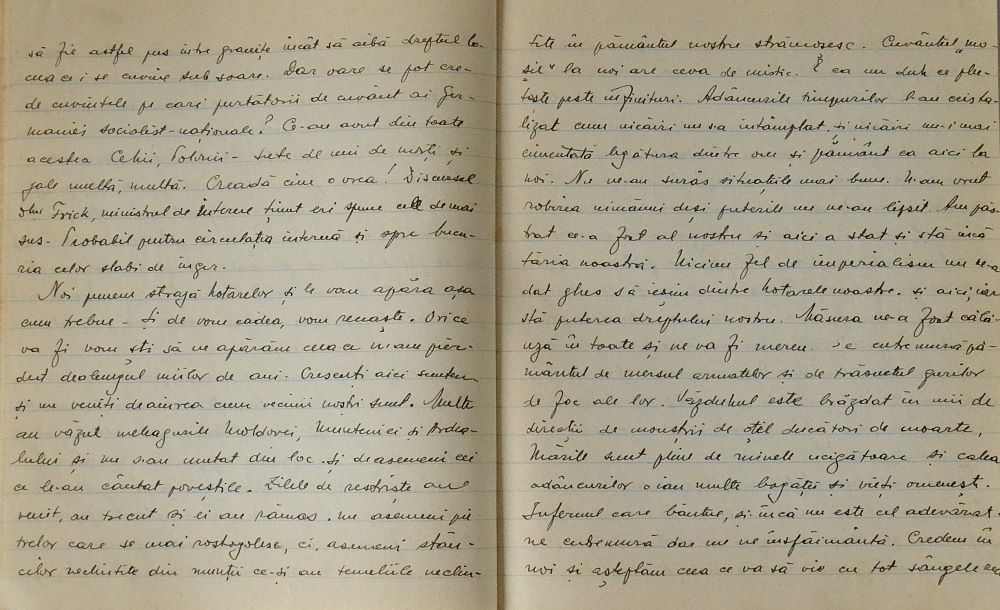 să fie astfel pus între granițe încât să aibă dreptul la
ceea ce i se cuvine sub soare. Dar oare se pot cre-
de cuvintele pe cari purtătorii de cuvânt ai Ger-
maniei socialist-naționale? Ce-au avut din toate
acestea Cehii, Polonii - sute de mii de morți și
jale multă, multă. Creadă cine o vrea! Discursul
dlui Frick, ministrul de Interne ținut eri spune cele de mai
sus. Probabil pentru circulația internă și spre bucu-
ria celor slabi de înger.
Noi punem strajă hotarelor și le vom apăra așa
cum trebue - Și de vom cădea, vom renaște. Orice
va fi vom ști să ne apărăm ceea ce n-am pier-
dut dealungul miilor de ani. Crescuți aici suntem
și nu veniți de aiurea cum vecinii noștri sunt. Multe
au văzut meleagurile Moldovei, Munteniei și Ardea-
lului și nu s-au mutat din loc. Și deasemeni cei
ce le-au cântat poveștile. Zilele de restriște au
venit, au trecut și ei au rămas. nu asemeni pie-
trelor care se mai rostogolesc, ci, asemeni stân-
cilor neclintite din munții ce-și au temeliile neclin-
tite în pământul nostru strămoșesc. Cuvântul "mo-
șie" la noi are ceva de mistic. E ca un duh ce plu-
tește peste infinituri. Adâncurile timpurilor l-au crista-
lizat cum nicăiri nu s-a întâmplat, și nicăiri nu-i mai
cimentată legătura dintre om și pământ ca aici la
noi. Nu ne-au surâs situațiile mai bune. N-am vrut
robirea nimănui deși puterile nu ne-au lipsit. Am păs-
trat ce-a fost al nostru și aici a stat și stă încă
tăria noastră. Niciun fel de imperialism nu ne-a
dat ghes să ieșim dintre hotarele noastre. și aici, iar
stă puterea dreptului nostru. Măsura ne-a fost călă-
uză în toate și ne va fi mereu. Se cutremură pă-
mântul de mersul armatelor și de trăsnetul gurilor
de foc ale lor. Văzduhul este brăzdat în mii de
direcții de monștrii de oțel ducători de moarte,
Mările sunt pline de minele ucigătoare și calea
adâncurilor o iau multe bogății și vieți omenești.
Infernul care bântue, și încă nu este cel adevărat -
ne cutremură dar nu ne înspăimântă. Credem în
noi și așteptăm ceea ce va să vie cu tot sângele